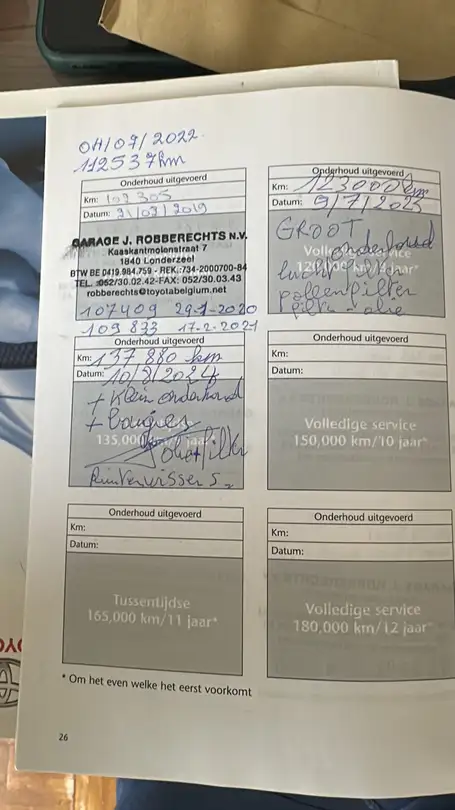 04/07/2022
112537km
Onderhoud uitgevoerd
Km: 102305
Datum: 21/02/2019
GARAGE J. ROBBERECHTS N.V.
Kaaskantmolenstraat 7
1840 Londerzeel
BTW BE 0419.984.759 - REK.:734-2000700-84
TEL. :052/30.02.42-FAX: 052/30.03.43
robberechts@toyotabelgium.net
107409 29-1-2020
109833 17-2-2021
Onderhoud uitgevoerd
Km: 123000km
Datum: 9/7/2023
GROOT
onderhoud
lucht filter
pollenfilter
filtr - olie
Onderhoud uitgevoerd
Km: 137880 km
Datum: 10/8/2024
+ Klein onderhoud
+ bougies
135,000
olie + filter
Ruitenwissers
Onderhoud uitgevoerd
Km:
Datum:
Volledige service
150,000 km/10 jaar*
Onderhoud uitgevoerd
Km:
Datum:
Tussentijdse
165,000 km/11 jaar*
Onderhoud uitgevoerd
Km:
Datum:
Volledige service
180,000 km/12 jaar*
* Om het even welke het eerst voorkomt
26